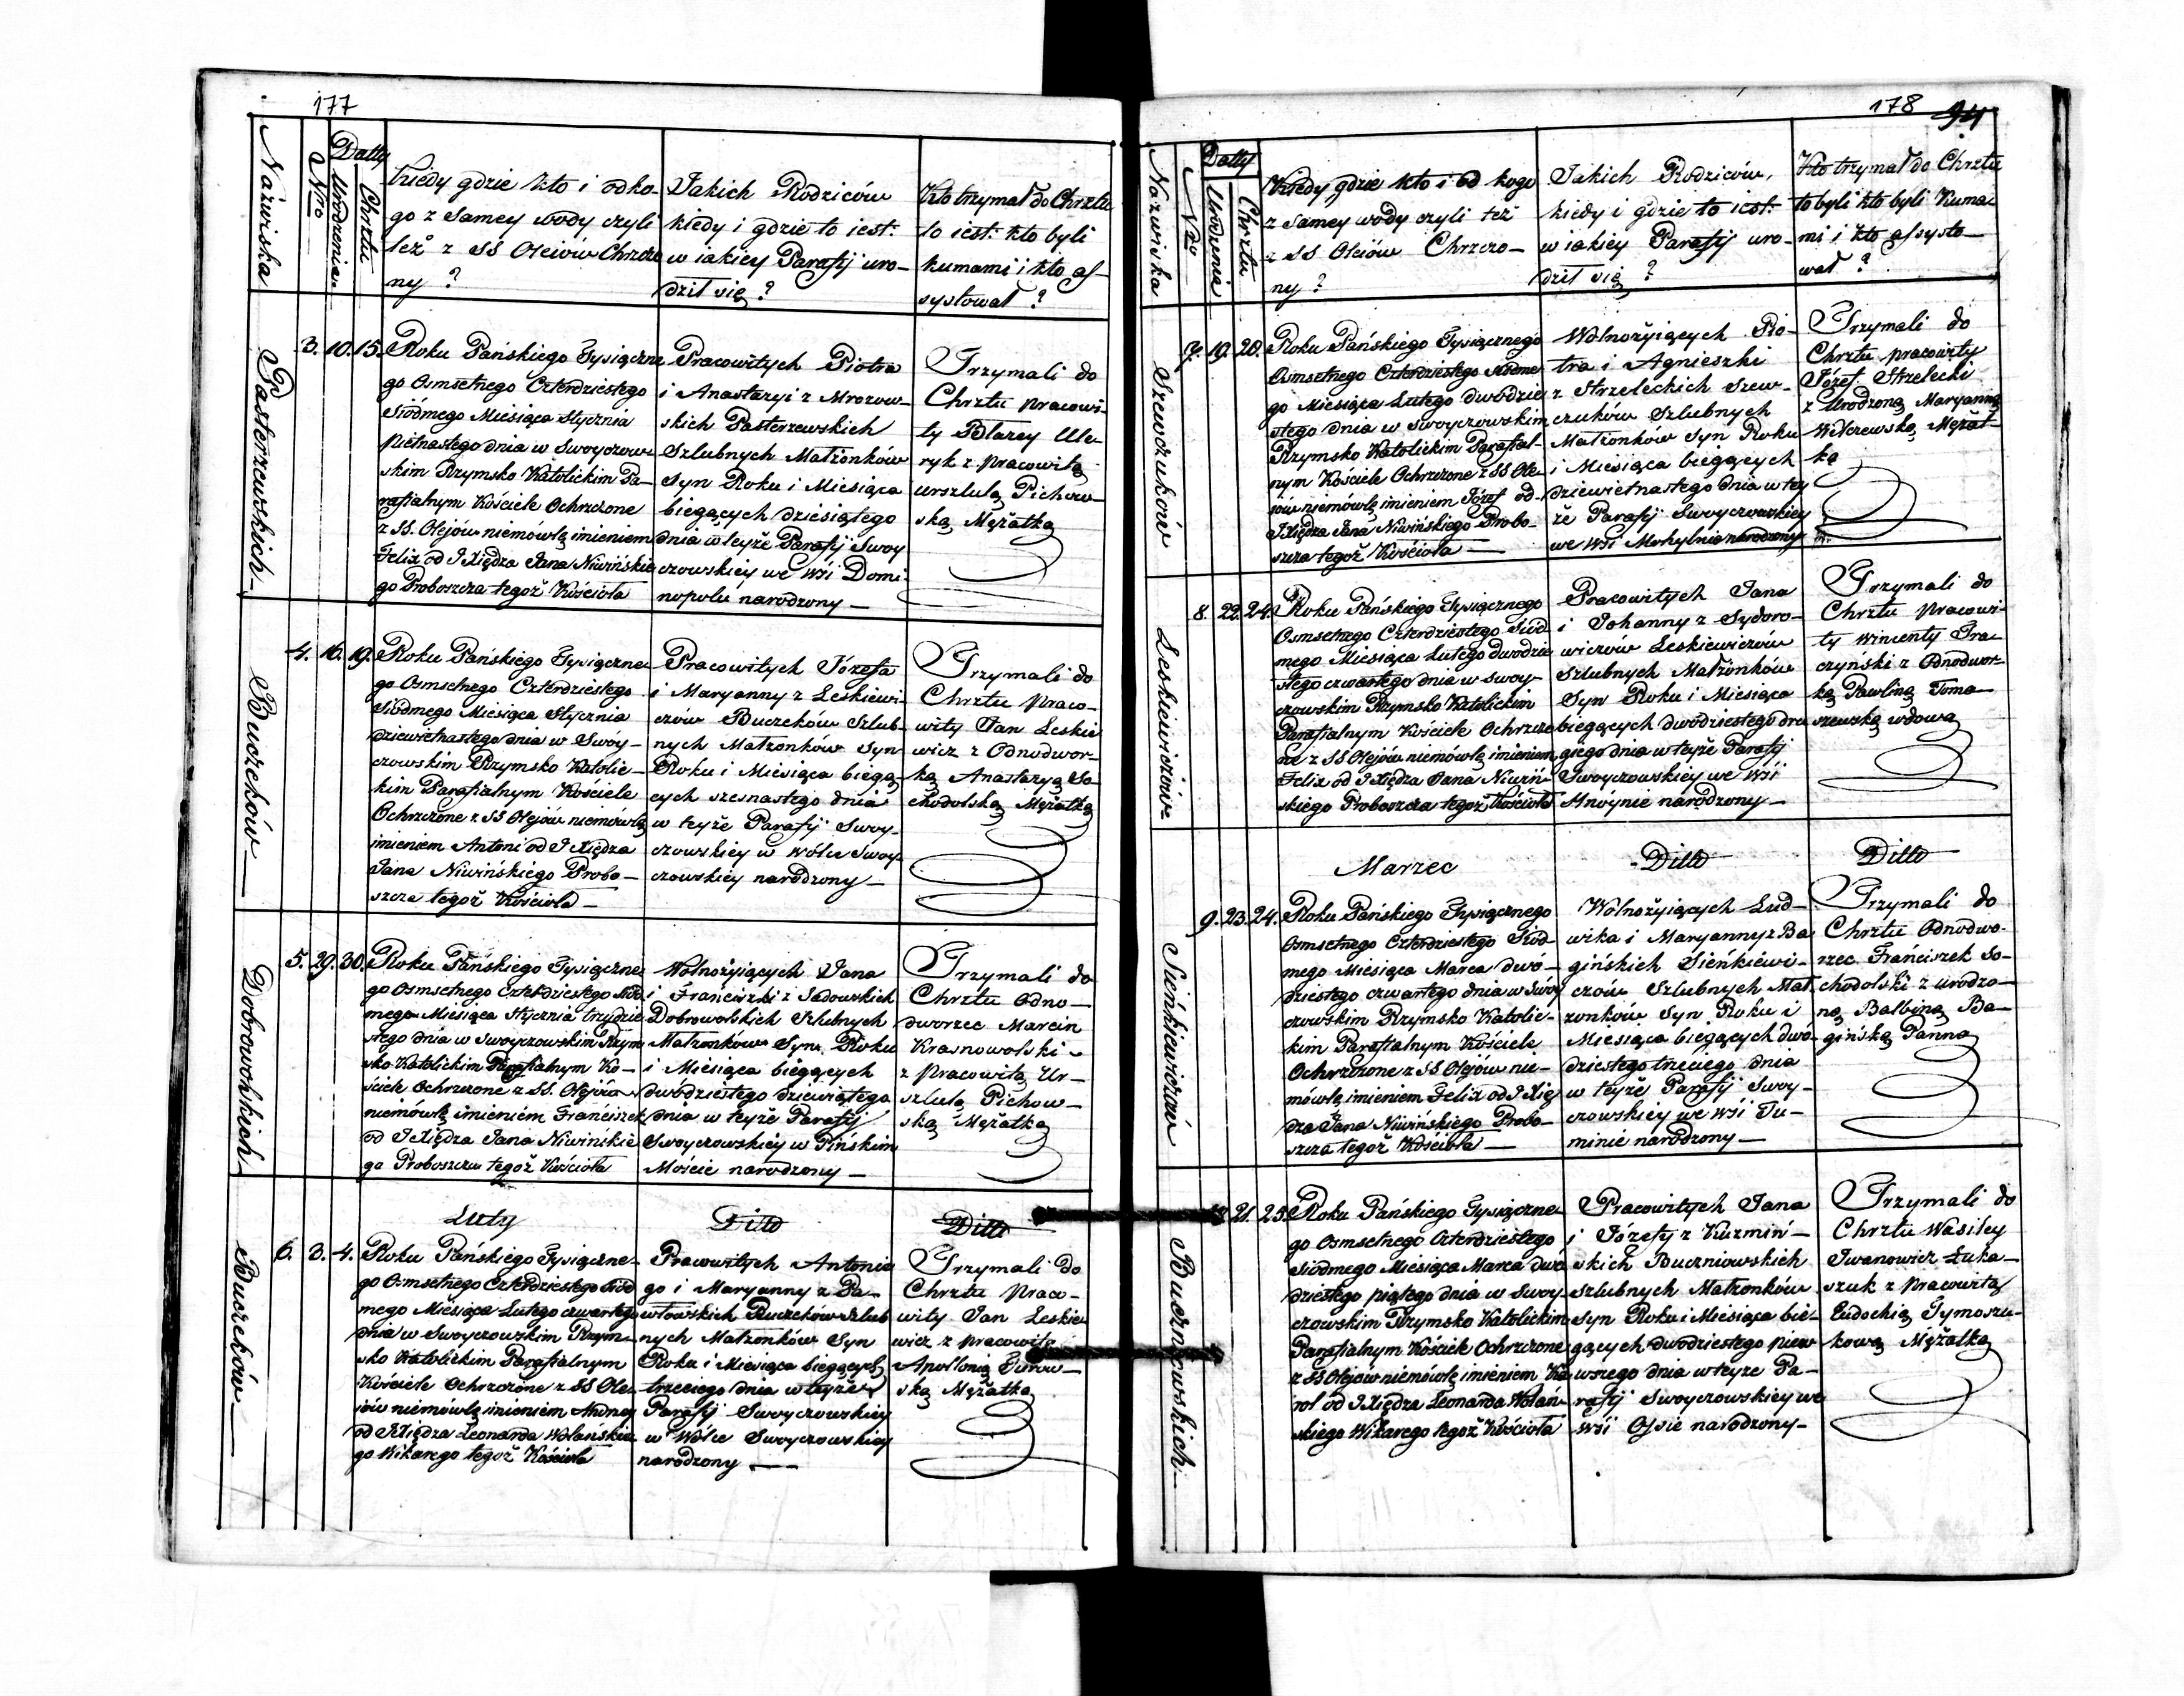 177
Nazwiska
Nro
Datty
Urodzenia
Chrztu
Kiedy gdzie kto i od ko-
go z samey wody czyli
też z SS Oleiów Chrzczo
ny ?
Jakich Rodziców
kiedy i gdzie to iest:
w iakiey Parafij uro-
dził się ?
Kto trzymał do Chrztu
to iest: kto byli
kumami i kto as-
systował ?
Pasterzewskich
3. 10. 15.
Roku Pańskiego Tysiączne
go Osmsetnego Czterdziestego
Siódmego Miesiąca Stycznia
pietnastego dnia w Swoyczow-
skim Rzymsko Katolickim Pa-
rafialnym Kościele Ochrzczone
z SS. Olejów niemówlę imieniem
Felix od JXiędza Jana Niwińskie
go Proboszcza tegoż Kościoła
Pracowitych Piotra
i Anastazyi z Mrozow-
skich Pasterzewskich
Szlubnych Małżonków
Syn Roku i Miesiąca
biegących dziesiątego
dnia w teyże Parafij Swoy
czowskiey we wsi Domi
nopolu narodzony —
Trzymali do
Chrztu pracowi-
ty Błazey Ule-
ryk z pracowitą
Urszulą Pichow-
ską Mężatką
Buczeków
4. 16. 19.
Roku Pańskiego Tysiączne
go Osmsetnego Czterdziestego
Siódmego Miesiąca Stycznia
dziewietnastego dnia w Swóy-
czowskim Rzymsko Katolic-
kim Parafialnym Kościele
Ochrzczone z SS Olejów niemowlę
imieniem Antoni od JXiędza
Jana Niwińskiego Probo-
szcza tegoż Kościoła —
Pracowitych Józefa
i Maryanny z Leskiewi-
czów Buczeków Szlub-
nych Małżonków Syn
Roku i Miesiąca biegą-
cych szesnastego dnia
w teyże Parafij Swoy-
czowskiey w Wólce Swoy
czowskiey narodzony —
Trzymali do
Chrztu praco-
wity Jan Leskie
wicz z Odnodwor-
ką Anastazyą So-
chodolską Mężatką
Dobrowolskich
5. 29. 30.
Roku Pańskiego Tysiączne
go Osmsetnego Czterdziestego Siód
mego Miesiąca Stycznia trzydzie
stego dnia w Swoyczowskim Rzym
sko Katolickim Parafialnym Ko-
ściele Ochrzczone z SS. Olejów
niemówlę imieniem Franciszek
od JXiędza Jana Niwińskie
go Proboszcza tegoż Kościoła
Wolnożyiących Jana
i Franciszki z Sadowskich
Dobrowolskich Szlubnych
Małżonków Syn Roku
i Miesiąca biegących
dwódziestego dziewiątego
dnia w teyże Parafij
Swoyczowskiey w Pińskim
Moście narodzony —
Trzymali do
Chrztu Odno-
dworzec Marcin
Krasnowolski
z pracowitą Ur-
szulą Pichow-
ską Mężatką
Luty
Ditto
Ditto
Buczeków
6. 3. 4.
Roku Pańskiego Tysiączne-
go Osmsetnego Czterdziestego Siód
mego Miesiąca Lutego czwartego
dnia w Swoyczowskim Rzym-
sko Katolickim Parafialnym
Kościele Ochrzczone z SS Ole-
iów niemówlę imieniem Andrzey
od JXiędza Leonarda Wolańskie
go Wikarego tegoż Kościoła
Pracowitych Antonie
go i Maryanny z Pa-
włowskich Buczeków Szlub
nych Małżonków Syn
Roku i Miesiąca biegących
trzeciego dnia w teyże
Parafij Swoyczowskiey
w Wólce Swoyczowskiey
narodzony —
Trzymali do
Chrztu praco-
wity Jan Leskie
wicz z pracowitą
Apollonią
ską Mężatką
178 94
Nazwiska
Nro
Datty
Urodzenia
Chrztu
Kiedy, gdzie kto i od kogo
z samey wody czyli też
z SS Oleiów Chrzczo-
ny ?
Jakich Rodziców,
kiedy i gdzie to iest:
w iakiey Parafij uro-
dził się ?
Kto trzymał do Chrztu
to byli kto byli Kuma-
mi i kto assysto-
wał ?
Szewczuków
7. 19. 20.
Roku Pańskiego Tysiącznego
Osmsetnego Czterdziestego Siódme
go Miesiąca Lutego dwodzie
stego dnia w Swoyczowskim
Rzymsko Katolickim Parafial-
nym Kościele Ochrzczone z SS Ole-
iów niemówlę imieniem Józef od
JXiędza Jana Niwińskiego Probo-
szcza tegoż Kościoła —
Wolnożyiących Pio-
tra i Agnieszki
z Strzeleckich Szew-
czuków Szlubnych
Małżonków Syn Roku
i Miesiąca biegących
dziewietnastego dnia w tey
że Parafij Swoyczowskiey
we wsi Mohylnie narodzony
Trzymali do
Chrztu pracowity
Józef Strzelecki
z Urodzoną Maryanną
Wilczewską Mężat-
ką
Leskiewiczów
8. 22. 24.
Roku Pańskiego Tysiącznego
Osmsetnego Czterdziestego Siód
mego Miesiąca Lutego dwodzie
stego czwartego dnia w Swoy-
czowskim Rzymsko Katolickim
Parafialnym Kościele Ochrzczo
ne z SS Olejów niemówlę imieniem
Felix od JXiędza Jana Niwiń-
skiego Proboszcza tegoż Kościoła
Pracowitych Jana
i Johanny z Sydoro-
wiczów Leskiewiczów
Szlubnych Małżonków
Syn Roku i Miesiąca
biegących dwodziestego dru
giego dnia w teyże Parafij
Swoyczowskiey we wsi
Hnóynie narodzony —
Trzymali do
Chrztu pracowi-
ty Wincenty Tra-
czyński z Odnodwor-
ką Pawliną Toma-
szewską wdową
Marzec
Ditto
Ditto
Sieńkiewiczów
9. 23. 24.
Roku Pańskiego Tysiącznego
Osmsetnego Czterdziestego Siód-
mego Miesiąca Marca dwó-
dziestego czwartego dnia w Swoy
czowskim Rzymsko Katolic-
kim Parafialnym Kościele
Ochrzczone z SS Olejów nie-
mówlę imieniem Felix od JXię
dza Jana Niwińskiego Probo-
szcza tegoż Kościoła —
Wolnożyiących Lud-
wika i Maryanny z Ba
gińskich Sieńkiewi-
czów Szlubnych Mał-
żonków Syn Roku i
Miesiąca biegących dwó-
dziestego trzeciego dnia
w teyże Parafij Swoy-
czowskiey we wsi Tu-
minie narodzony —
Trzymali do
Chrztu Odnodwo-
rzec Franciszek So-
chodolski z urodzo-
ną Balbiną Ba-
gińską Panną
Buczniowskich
21. 25.
Roku Pańskiego Tysiączne
go Osmsetnego Czterdziestego
Siódmego Miesiąca Marca dwó
dziestego piątego dnia w Swoy-
czowskim Rzymsko Katolickim
Parafialnym Kościele Ochrzczone
z SS Olejów niemówlę imieniem Ka
rol od JXiędza Leonarda Wolań-
skiego Wikarego tegoż Kościoła
Pracowitych Jana
i Józefy z Kuzmiń-
skich Buczniowskich
szlubnych Małżonków
Syn Roku i Miesiąca bie-
gących dwodziestego pierw
wszego dnia w teyże Pa-
rafij Swoyczowskiey we
wsi Ossie narodzony —
Trzymali do
Chrztu Wasiley
Iwanowicz Łuka-
szuk z pracowitą
Eudochią Tymoszu-
kową Mężatką